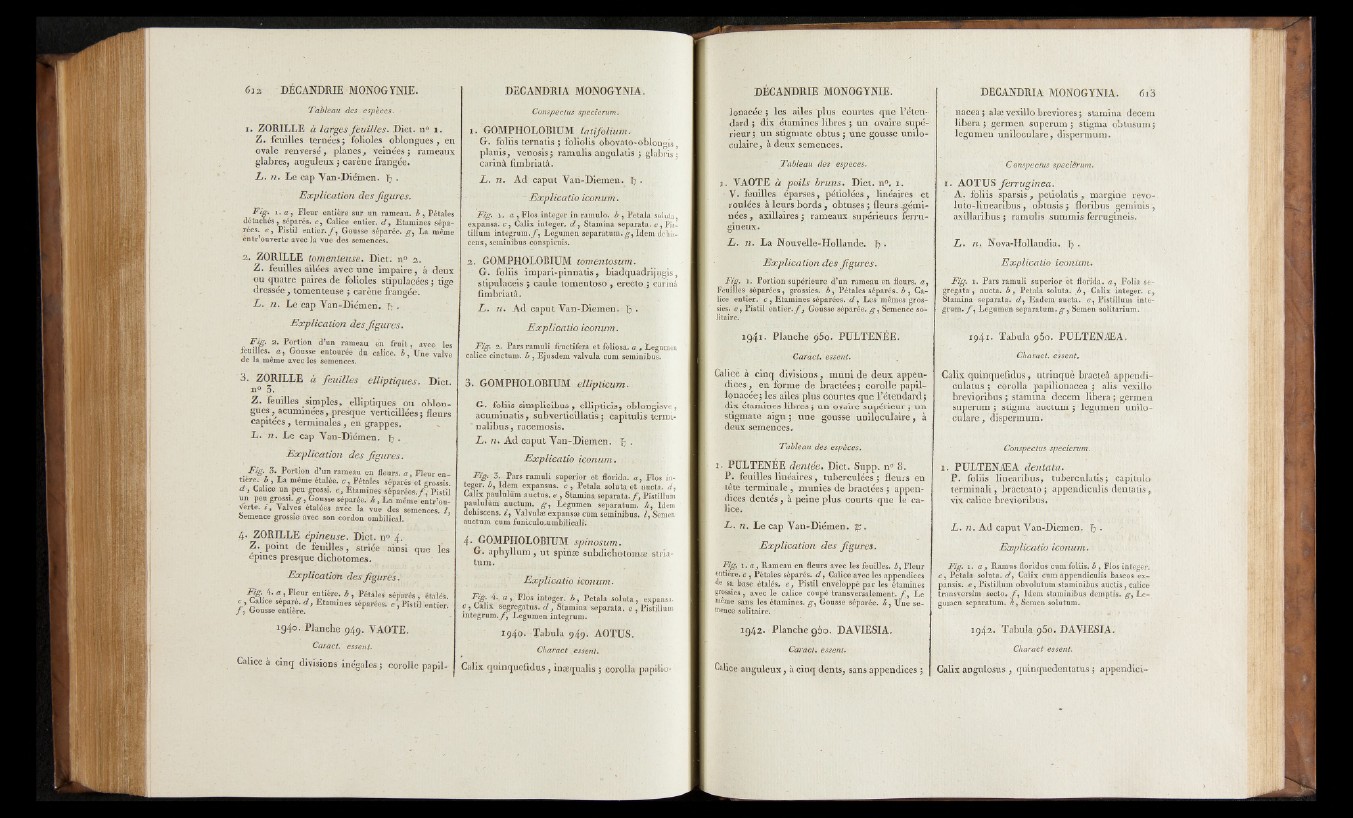 612 DÉCANDRIE MONOGYNIE.
Tableau des espèces.
1. ZORILLE à larges feuilles. Dict. n° 1.
Z. feuilles ternées ; folioles oblongues , en
ovale renversé , planes , veinées ; rameaux
glabres, anguleux ; carène frangée.
L. n. Le cap Van-Diémen. ♄ .
Explication des figures.
Fig. 1. a, Fleur entière sur un rameau. b , Pétales
détachés , séparés. c, Calice entier. d, Etamines sépa-
rées. e, Pistil entier. f, Gousse séparée. g, La même
entr'ouverte avec la vue des semences.
2. ZORILLE tomenteuse. Dict. n° 2.
Z. feuilles ailées avec une impaire , à deux
ou quatre paires de folioles stipulacées ; tige
dressée , tomenteuse ; carène frangée.
L. n. Le cap Van-Diémen. ♄ .
Explication des figures.
Fig. 2. Portion d'un rameau en fruit , avec les
feuilles. a, Gousse entourée du calice. b , Une valve
de la même avec les semences.
3. ZORILLE à feuilles elliptiques. Dict.
n° 3.
Z. feuilles simples, elliptiques ou oblon-
gues , acuminées , presque verticillées ; fleurs
capitées , terminales , en grappes.
L. n. Le cap Van-Diémen. ♄ .
Explication des figures.
Fig. 3. Portion d'un rameau en fleurs. a, Fleur en-
tière. b , La même étalée. c, Pétales séparés et grossis.
d, Calice un peu grossi. e, Etamines séparées. f, Pistil
un peu grossi. g, Gousse séparée. h, La même entr'ou-
verte. i, Valves étalées avec la vue des semences. l,
Semence grossie avec son cordon ombilical.
4. ZORILLE épineuse. Dict. n° 4.
Z. point de feuilles , striée ainsi que les
épines presque dichotomes.
Explication des figures.
Fig. 4. a, Fleur entière. b , Pétales séparés , étalés.
c, Calice séparé. d, Etamines séparées. e, Pistil entier.
f, Gousse entière.
1940. Planche 949. VAOTE.
Caract. essent.
Calice à cinq divisions inégales ; corolle papil-
DECANDRIA MONOGYNIA.
Conspectus specierum.
1. GOMPHOLOBIUM latifolium.
G. foliis ternatis ; foliolis obovato-oblongis ,
planis, venosis ; ramulis angulatis ; glabris ;
carinâ fimbriatâ.
L. n. Ad caput Van-Diemen. ♄ .
Explicatio iconum.
Fig. 1. a, Flos integer in ramulo. b , Petala soluta,
expansa. c, Calix integer. d, Stamina separata. e, Pis-
tillum integrum. f, Legumen separatum. g, Idem dehis-
cens, seminibus conspicuis.
2. GOMPHOLOBIUM tomentosum.
G. foliis impari-pinnatis, biadquadrijugis,
stipulaceis ; caule tomentoso , erecto ; carinâ
fimbriatâ.
L. n. Ad caput Van-Diemen. ♄ .
Explicatio iconum.
Fig. 2. Pars ramuli fructifera et foliosa. a , Legumen
calice cinctum. b , Ejusdem valvula cum seminibus.
3. GOMPHOLOBIUM ellipticum.
G. foliis simplicibus, ellipticis, oblongisve,
acuminatis, subverticillatis ; capitulis termi-
nalibus, racemosis.
L. n. Ad caput Van-Diemen. ♄ .
Explicatio iconum.
Fig. 3. Pars ramuli superior et florida. a, Flos in-
teger. b, Idem expansus. c , Petala soluta et aucta. d,
Calix paululùm auctus. e , Stamina separata. f, Pistillum
paululùm auctum. g, Legumen separatum. h, Idem
dehiscens. i, Valvulæ expansæ cum seminibus. l, Semen
auctum cum funiculo umbilicali.
4. GOMPHOLOBIUM spinosum.
G. aphyllum , ut spinæ subdichotomæ stria-
tum.
Explicatio iconum.
Fig. 4. a , Flos integer. b, Petala soluta, expansa.
c, Calix segregatus. d, Stamina separata. e, Pistillum
integrum. f, Legumen integrum.
1940. Tabula 949. AOTUS.
Charact. essent.
Calix quinquefidus , inæqualis ; corolla papilio-
DÉCANDRIE MONOGYNIE.
lonacée ; les ailes plus courtes que l'éten-
dard ; dix étamines libres ; un ovaire supé-
rieur ; un stigmate obtus ; une gousse unilo-
culaire, à deux semences.
Tableau des espèces.
1. VAOTE à poils bruns. Dict. n°. 1.
V. feuilles éparses, pétiolées , linéaires et
roulées à leurs bords , obtuses ; fleurs gémi-
nées , axillaires ; rameaux supérieurs ferru-
gineux.
L. n. La Nouvelle-Hollande. ♄ .
Explication des figures.
Fig. 1. Portion supérieure d'un rameau en fleurs. a,
Feuilles séparées, grossies. b, Pétales séparés. b , Ca-
lice entier. c, Etamines séparées. d, Les mêmes gros-
sies. e, Pistil entier. f, Gousse séparée. g, Semence so-
litaire.
1941. Planche 950. PULTENÉE.
Caract. essent.
Calice à cinq divisions , muni de deux appen-
dices , en forme de bractées ; corolle papil-
lonacée ; les ailes plus courtes que l'étendard ;
dix étamines libres ; un ovaire supérieur ; un
stigmate aigu ; une gousse uniloculaire , à
deux semences.
Tableau des espèces.
1. PULTENÉE dentée. Dict. Supp. n° 8.
P. feuilles linéaires , tuberculées ; fleurs en
tête terminale , munies de bractées ; appen-
dices dentés , à peine plus courts que le ca-
lice.
L. n. Le cap Van-Diémen. ♄ .
Explication des figures.
Fig. 1. a , Rameau en fleurs avec les feuilles. b, Fleur
entière. c, Pétales séparés. d, Calice avec les appendices
de sa base étalés. e, Pistil enveloppé par les étamines
grossies , avec le calice coupé transversalement. f, Le
même sans les étamines. g, Gousse séparée. h, Une se-
mence solitaire.
1942. Planche 950. DAVIESIA.
Caract. essent.
Calice anguleux , à cinq dents, sans appendices ;
DECANDRIA MONOGYNIA. 613
nacea ; alæ vexillo breviores ; stamina decem
libera ; germen superum ; stigma obtusum ;
legumen uniloculare , dispermum.
Conspectus specierum.
1. AOTUS ferruginea.
A. foliis sparsis , petiolatis , margine revo-
luto-linearibus , obtusis ; floribus geminis ,
axillaribus ; ramulis summis ferrugineis.
L. n. Nova-Hollandia. ♄ .
Explicatio iconum.
Fig. 1. Pars ramuli superior et florida. a, Folia se-
gregata , aucta. b , Petala soluta. b, Calix integer. c,
Stamina separata. d, Eadem aucta. e, Pistillum inte-
grum. f, Legumen separatum. g, Semen solitarium.
1941. Tabula 950. PULTENÆA.
Charact. essent.
Calix quinquefidus , utrinquè bracteâ appendi-
culatus ; corolla papilionacea ; alis vexillo
brevioribus ; stamina decem libera ; germen
superum ; stigma auctum ; legumen unilo-
culare , dispermum.
Conspectus specierum.
1. PULTENÆA dentata.
P. foliis linearibus, tuberculatis ; capitulo
terminali , bracteato ; appendiculis dentatis ,
vix calice brevioribus.
L. n. Ad caput Van-Diemen. ♄ .
Explicatio iconum.
Fig. 1. a , Ramus floridus cum foliis. b , Flos integer.
c, Petala soluta. d, Calix cum appendiculis baseos ex-
pansis. e, Pistillum obvolutum staminibus auctis, calice
transversim secto. f, Idem staminibus demptis. g, Le-
gumen separatum. h, Semen solutum.
1942. Tabula 950. DAVIESIA.
Charact. essent.
Calix angulosus , quinquedentatus ; appendici-